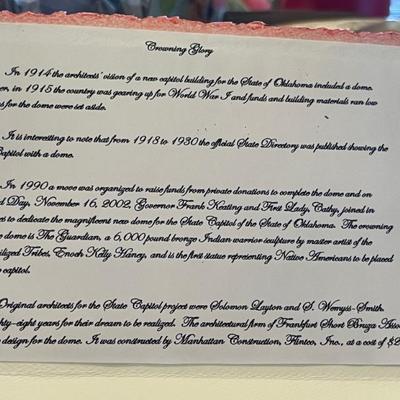 Crowning Glory
In 1914 the architects' vision of a new capitol building for the State of Oklahoma included a dome.
er, in 1915 the country was gearing up for World War I and funds and building materials ran low
s for the dome were set aside.
It is interesting to note that from 1918 to 1930 the official State Directory was published showing the
Capitol with a dome.
In 1990 a move was organized to raise funds from private donations to complete the dome and on
d Day, November 16, 2002, Governor Frank Keating and First Lady, Cathy, joined in
es to dedicate the magnificent new dome for the State Capitol of the State of Oklahoma. The crowning
e dome is The Guardian, a 6,000 pound bronze Indian warrior sculpture by master artist of the
ilized Tribes, Enoch Kelly Haney, and is the first statue representing Native Americans to be placed
e capitol.
Original architects for the State Capitol project were Solomon Layton and S. Wemyss-Smith.
hty-eight years for their dream to be realized. The architectural firm of Frankfurt Short Bruza Asso
e design for the dome. It was constructed by Manhattan Construction, Flintco, Inc., at a cost of $2